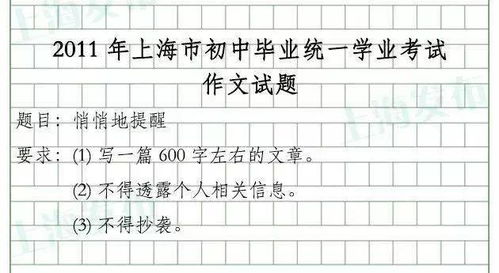 2011 年上海市初中毕业统一学业考试
作文试题
题目：悄悄地提醒
要求：(1) 写一篇 600 字左右的文章。
(2) 不得透露个人相关信息。
(3) 不得抄袭。
上海发布
上海发布
上海发布